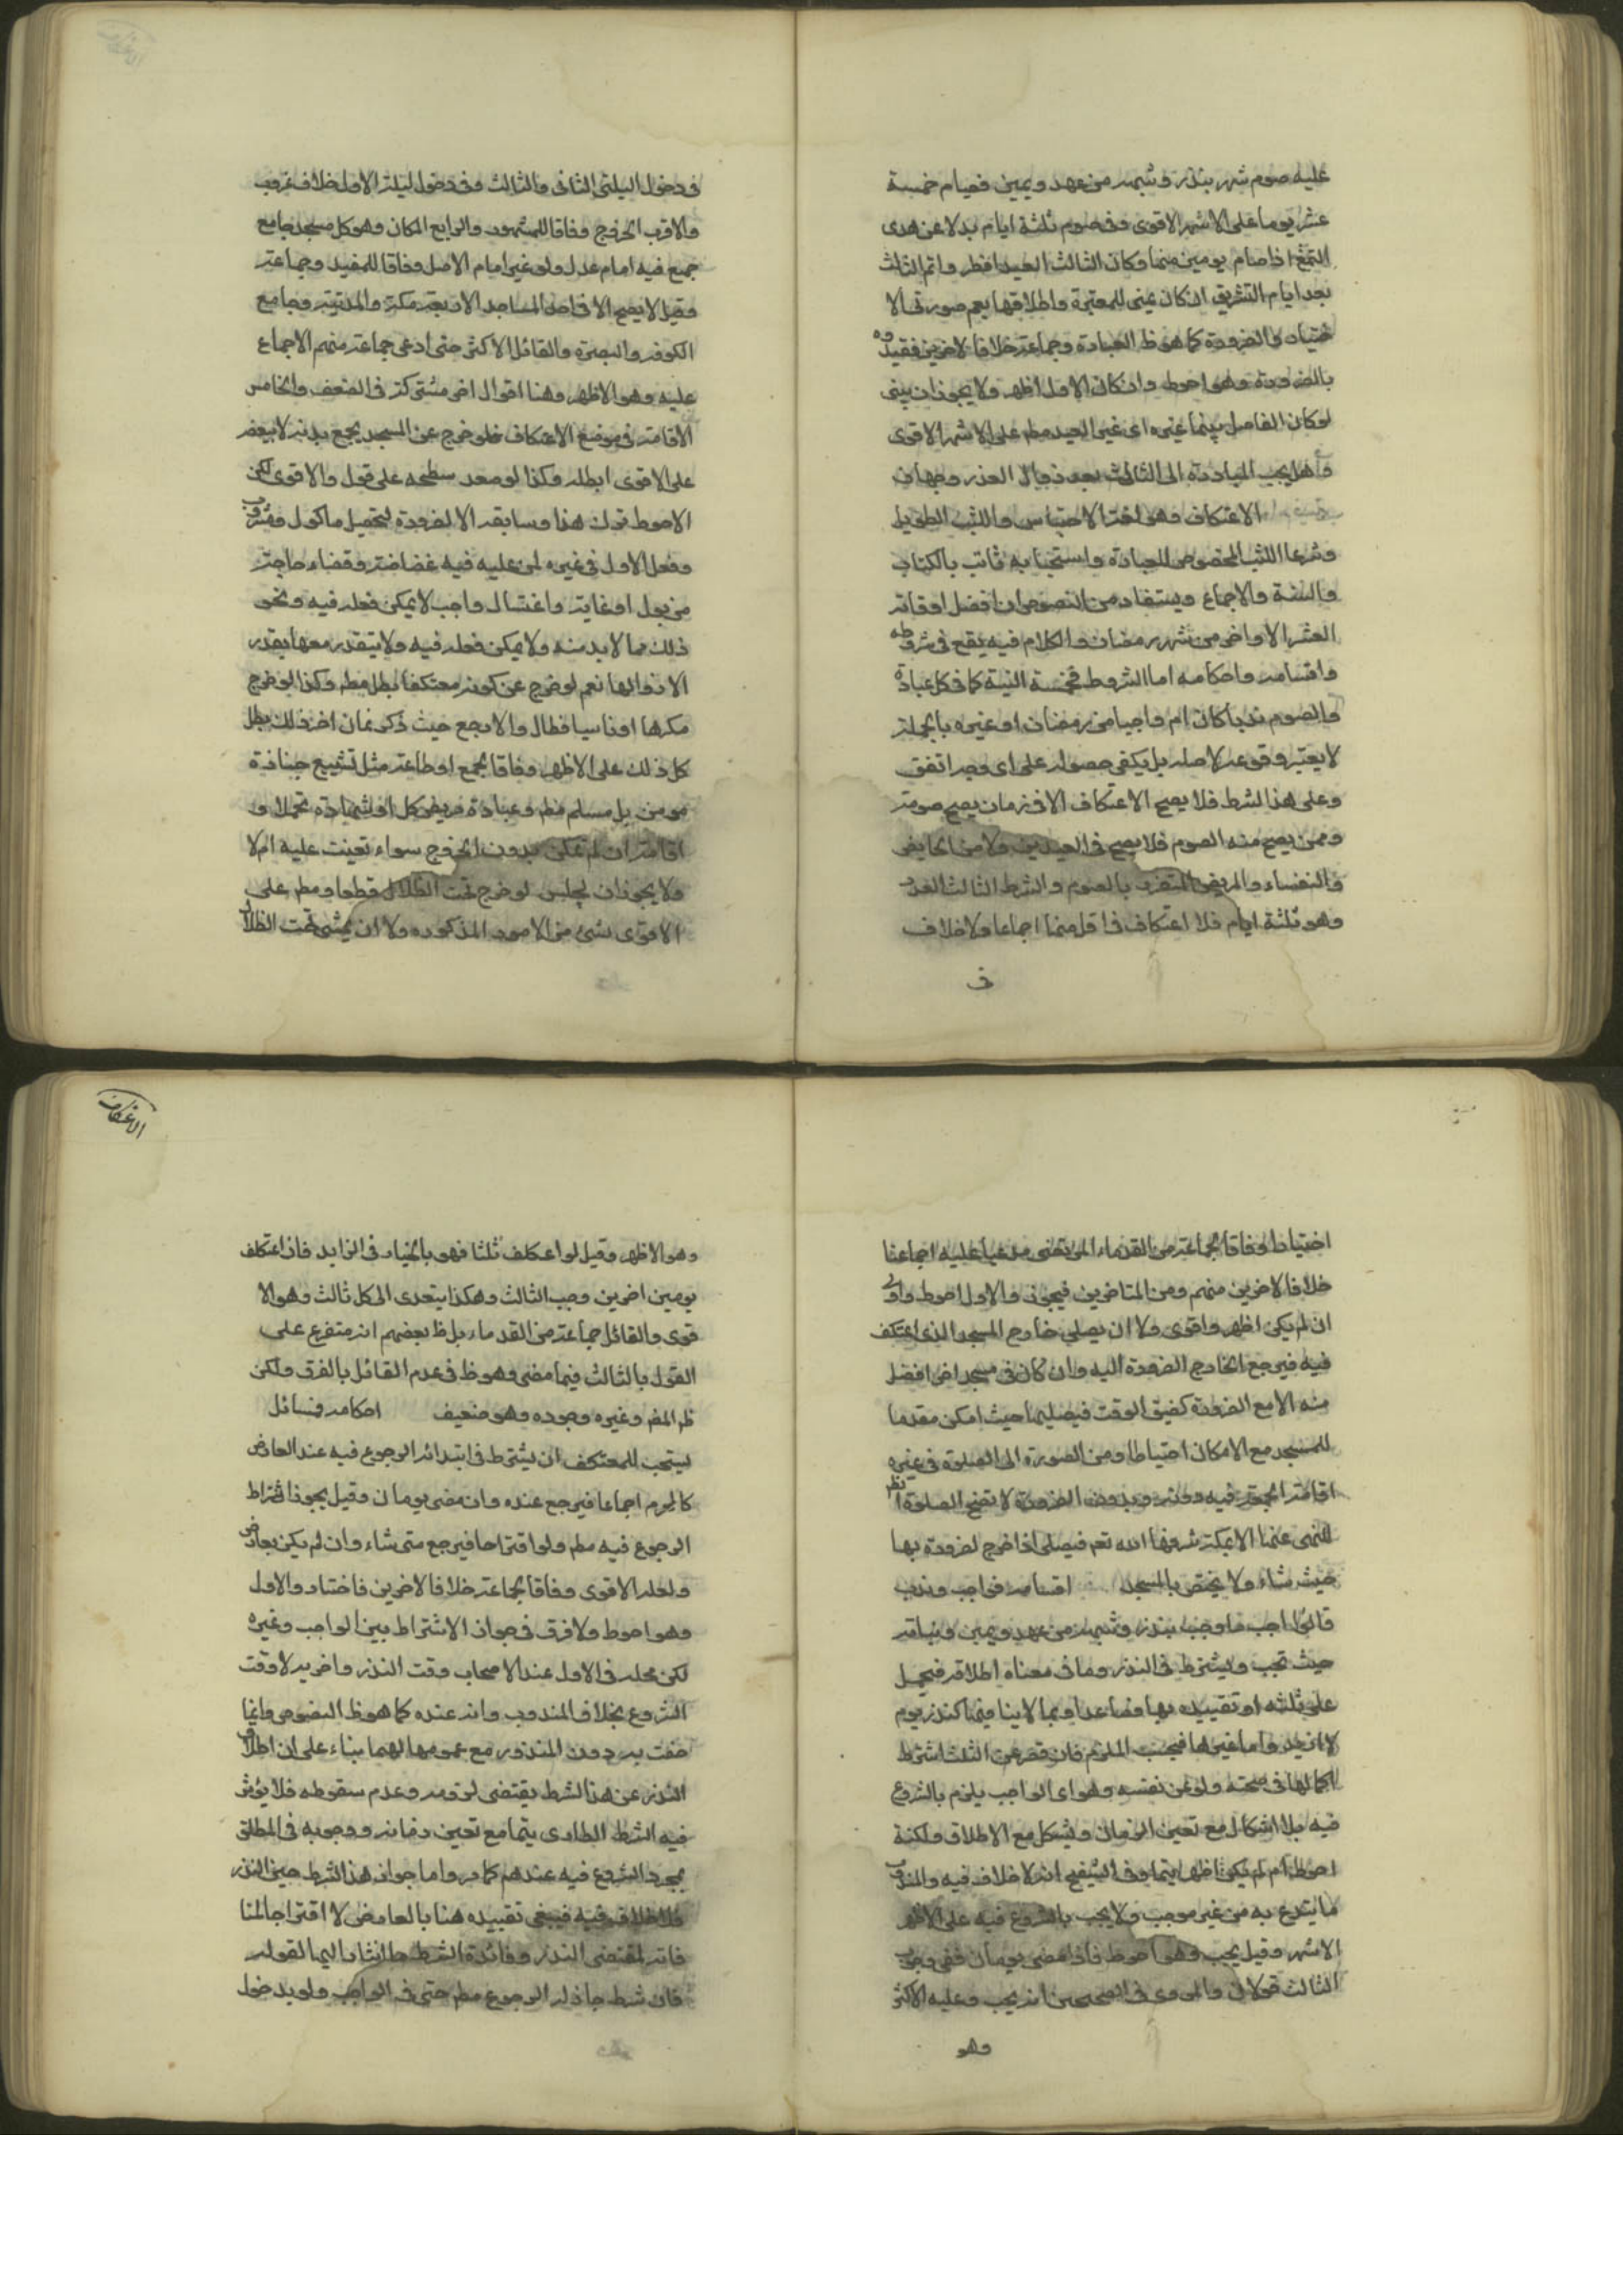 عليه صوم شهر بنذر وشبهه من عهد ويمين فصيام خمسة
عشر يوما على الاشهر الاقوى وفى صوم ثلثة ايام بدلا عن هدى
التمتع اذا صام يومين منها وكان الثالث العيد افطر واتم الثالث
بعد ايام التشريق ان كان بمنى للمعتبرة واطلاقها يعم صورتى الا
ختيار والضرورة كما هو ظ العبادة وجماعة خلافا لاخرين فقيدوه
بالضرورة وهو احوط وان كان الاول اظهر ولا يجوز ان يبنى
لو كان الفاصل بينها غيره اى غير العيد مطم على الاشهر الاقوى
وهل يجب المبادرة الى الثالث بعد زوال العذر وجهان
الاعتكاف وهو لغة الاحتباس واللبث الطويل
وشرعا اللبث المخصوص للعبادة واستحبابه ثابت بالكتاب
والسنة والاجماع ويستفاد من النصوص ان افضل اوقاته
العشر الاواخر من شهر رمضان والكلام فيه يقع فى شروطه
واقسامه واحكامه اما الشروط فخمسة النية كما فى كل عبادة
والصوم ندبا كان ام واجبا من رمضان او غيره بالجملة
لا يعتبر وقوعه لاجله بل يكفى حصوله على اى وجه اتفق
وعلى هذا الشرط فلا يصح الاعتكاف الا فى زمان يصح صومه
وممن يصح منه الصوم فلا يصح فى العيدين ولا من الحايض
والنفساء والمريض المتضرر بالصوم والشرط الثالث العدد
وهو ثلثة ايام فلا اعتكاف فى اقل منها اجماعا ولا خلاف
فى
فى دخول الليلتى الثانى والثالث وفى دخول ليلة الاول خلاف معروف
والاقرب الخروج وفاقا للمشهور والرابع المكان وهو كل مسجد جامع
جمع فيه امام عدل ولو غير امام الاصل وفاقا للمفيد وجماعة
وقيل لا يصح الا فى احد المساجد الاربعة مكة والمدينة وجامع
الكوفة والبصرة والقائل الاكثر حتى ادعى جماعة منهم الاجماع
عليه وهو الاظهر وهنا اقوال اخر مشتركة فى الضعف والخامس
الاقامة فى موضع الاعتكاف فلو خرج عن المسجد بجمع بدنه لا ببعضه
على الاقوى ابطله وكذا لو صعد سطحه على قول والاقوى لكن
الاحوط ترك هذا وسابقه الا لضرورة لتحصيل ماكول ومشروب
وفعل الاول فى غيره لمن عليه فيه غضاضة وقضاء حاجة
من بول او غايط واغتسال واجب لا يمكن فعله فيه ونحو
ذلك مما لا بد منه ولا يمكن فعله فيه ولا يتقدر معها بقدر
الا زوالها نعم لو خرج عن كونه معتكفا بطل مطم وكذا لو خرج
مكرها او ناسيا فطال والا رجع حيث ذكر فان اخر ذلك بطل
كل ذلك على الاظهر وفاقا لجمع او طاعة مثل تشييع جنازة
مومن بل مسلم مطم وعيادة مريض كل او شهادة تحملا و
اقامة ان لم يمكن بدون الخروج سواء تعينت عليه ام لا
ولا يجوز ان يجلس لو خرج تحت الظلال قطعا ومطم على
الاقوى بشئ من الامور المذكوره ولا ان يمشى تحت الظلال
الاعتكاف
اختياطا وفاقا لجماعة من القدماء المرتضى مدعيا عليه اجماعنا
خلافا لاخرين منهم ومن المتاخرين فيجوز والاول احوط واولى
ان لم يكن اظهر واقوى ولا ان يصلى خارج المسجد الذى اعتكف
فيه فيرجع الخارج الضرورة اليه وان كان فى مسجد اخر افضل
منه الا مع الضرورة كضيق الوقت فيصليها حيث امكن مقدما
للمسجد مع الامكان احتياطا ومن الضرورة الى الصلوة فى غيره
اقامة الجمعة فيه دونه وبدون الضرورة لا تصح الصلوة ايضا
للنهى عنها الا بمكة شرفها الله تعم فيصلى اذا خرج لضرورة بها
حيث شاء ولا يختص بالمسجد اقسامه فواجب وندب
فالواجب ما وجب بنذر وشبهه من عهد ويمين ونيابة
حيث تجب ويشترط فى النذر وما فى معناه اطلاقه فيحمل
على ثلثه او تقييده بها فصاعدا وبما لا ينافيها كنذر يوم
لا ازيد واما غيرها فبحسب الملتزم فان قصر عن الثلث اشترط
اكمالها فى صحته ولو عن نفسه وهو اى الواجب يلزم بالشروع
فيه بلا اشكال مع تعين الزمان ويشكل مع الاطلاق ولكنه
احوط ام لم يكن اظهر بينهما وفى التنقيح انه لا خلاف فيه والمندوب
ما يتبرع به من غير موجب ولا يجب بالشروع فيه على الاظهر
الاشهر وقيل يجب وهو احوط فاذا مضى يومان ففى وجوب
الثالث قولان والمروى فى الصحيحين انه يجب وعليه الاكثر
وهو
وهو الاظهر وقيل لو اعتكف ثلثا فهو بالخيار فى الزايد فان اعتكف
يومين اخرين وجب الثالث وهكذا يتعدى الى كل ثالث وهو الا
قوى والقائل جماعة من القدماء بل ظ بعضهم انه متفرع على
القول بالثالث فيما مضى وهو ظ فى عدم القائل بالفرق ولكن
ظم المفم وغيره وجوده وهو ضعيف احكامه ومسائل
يستحب للمعتكف ان يشترط فى ابتدائه الرجوع فيه عند العارض
كالمحرم اجماعا فيرجع عنده وان مضى يومان وقيل يجوز اشتراط
الرجوع فيه مطم ولو اقتراحا فيرجع متى شاء وان لم يكن بعارض
ولعله الاقوى وفاقا لجماعة خلافا لاخرين فاختاروا الاول
وهو احوط ولا فرق فى جواز الاشتراط بين الواجب وغيره
لكن محله فى الاول عند الاصحاب وقت النذر واخريه لا وقت
الشروع بخلاف المندوب وانه عنده كما هو ظ النصوص وانما
خصت به دون المنذور مع عمومها لهما بناء على ان اطلاق
النذر عن هذا الشرط يقتضى لزومه وعدم سقوطه فلا يؤثر
فيه الشرط الطارى يتما مع تعين زمانه ووجوبه فى المطلق
بمجرد الشروع فيه عندهم كما مر واما جواز هذا الشرط حين النذر
فلا خلاف فيه فيبغى تقييده هنا بالعارض لا اقتراحا لمنا
فاته لمقتضى النذر وفائدة الشرط ما اشار اليها لقوله
فان شرط جاز له الرجوع مطم حتى فى الواجب ولو بدخول